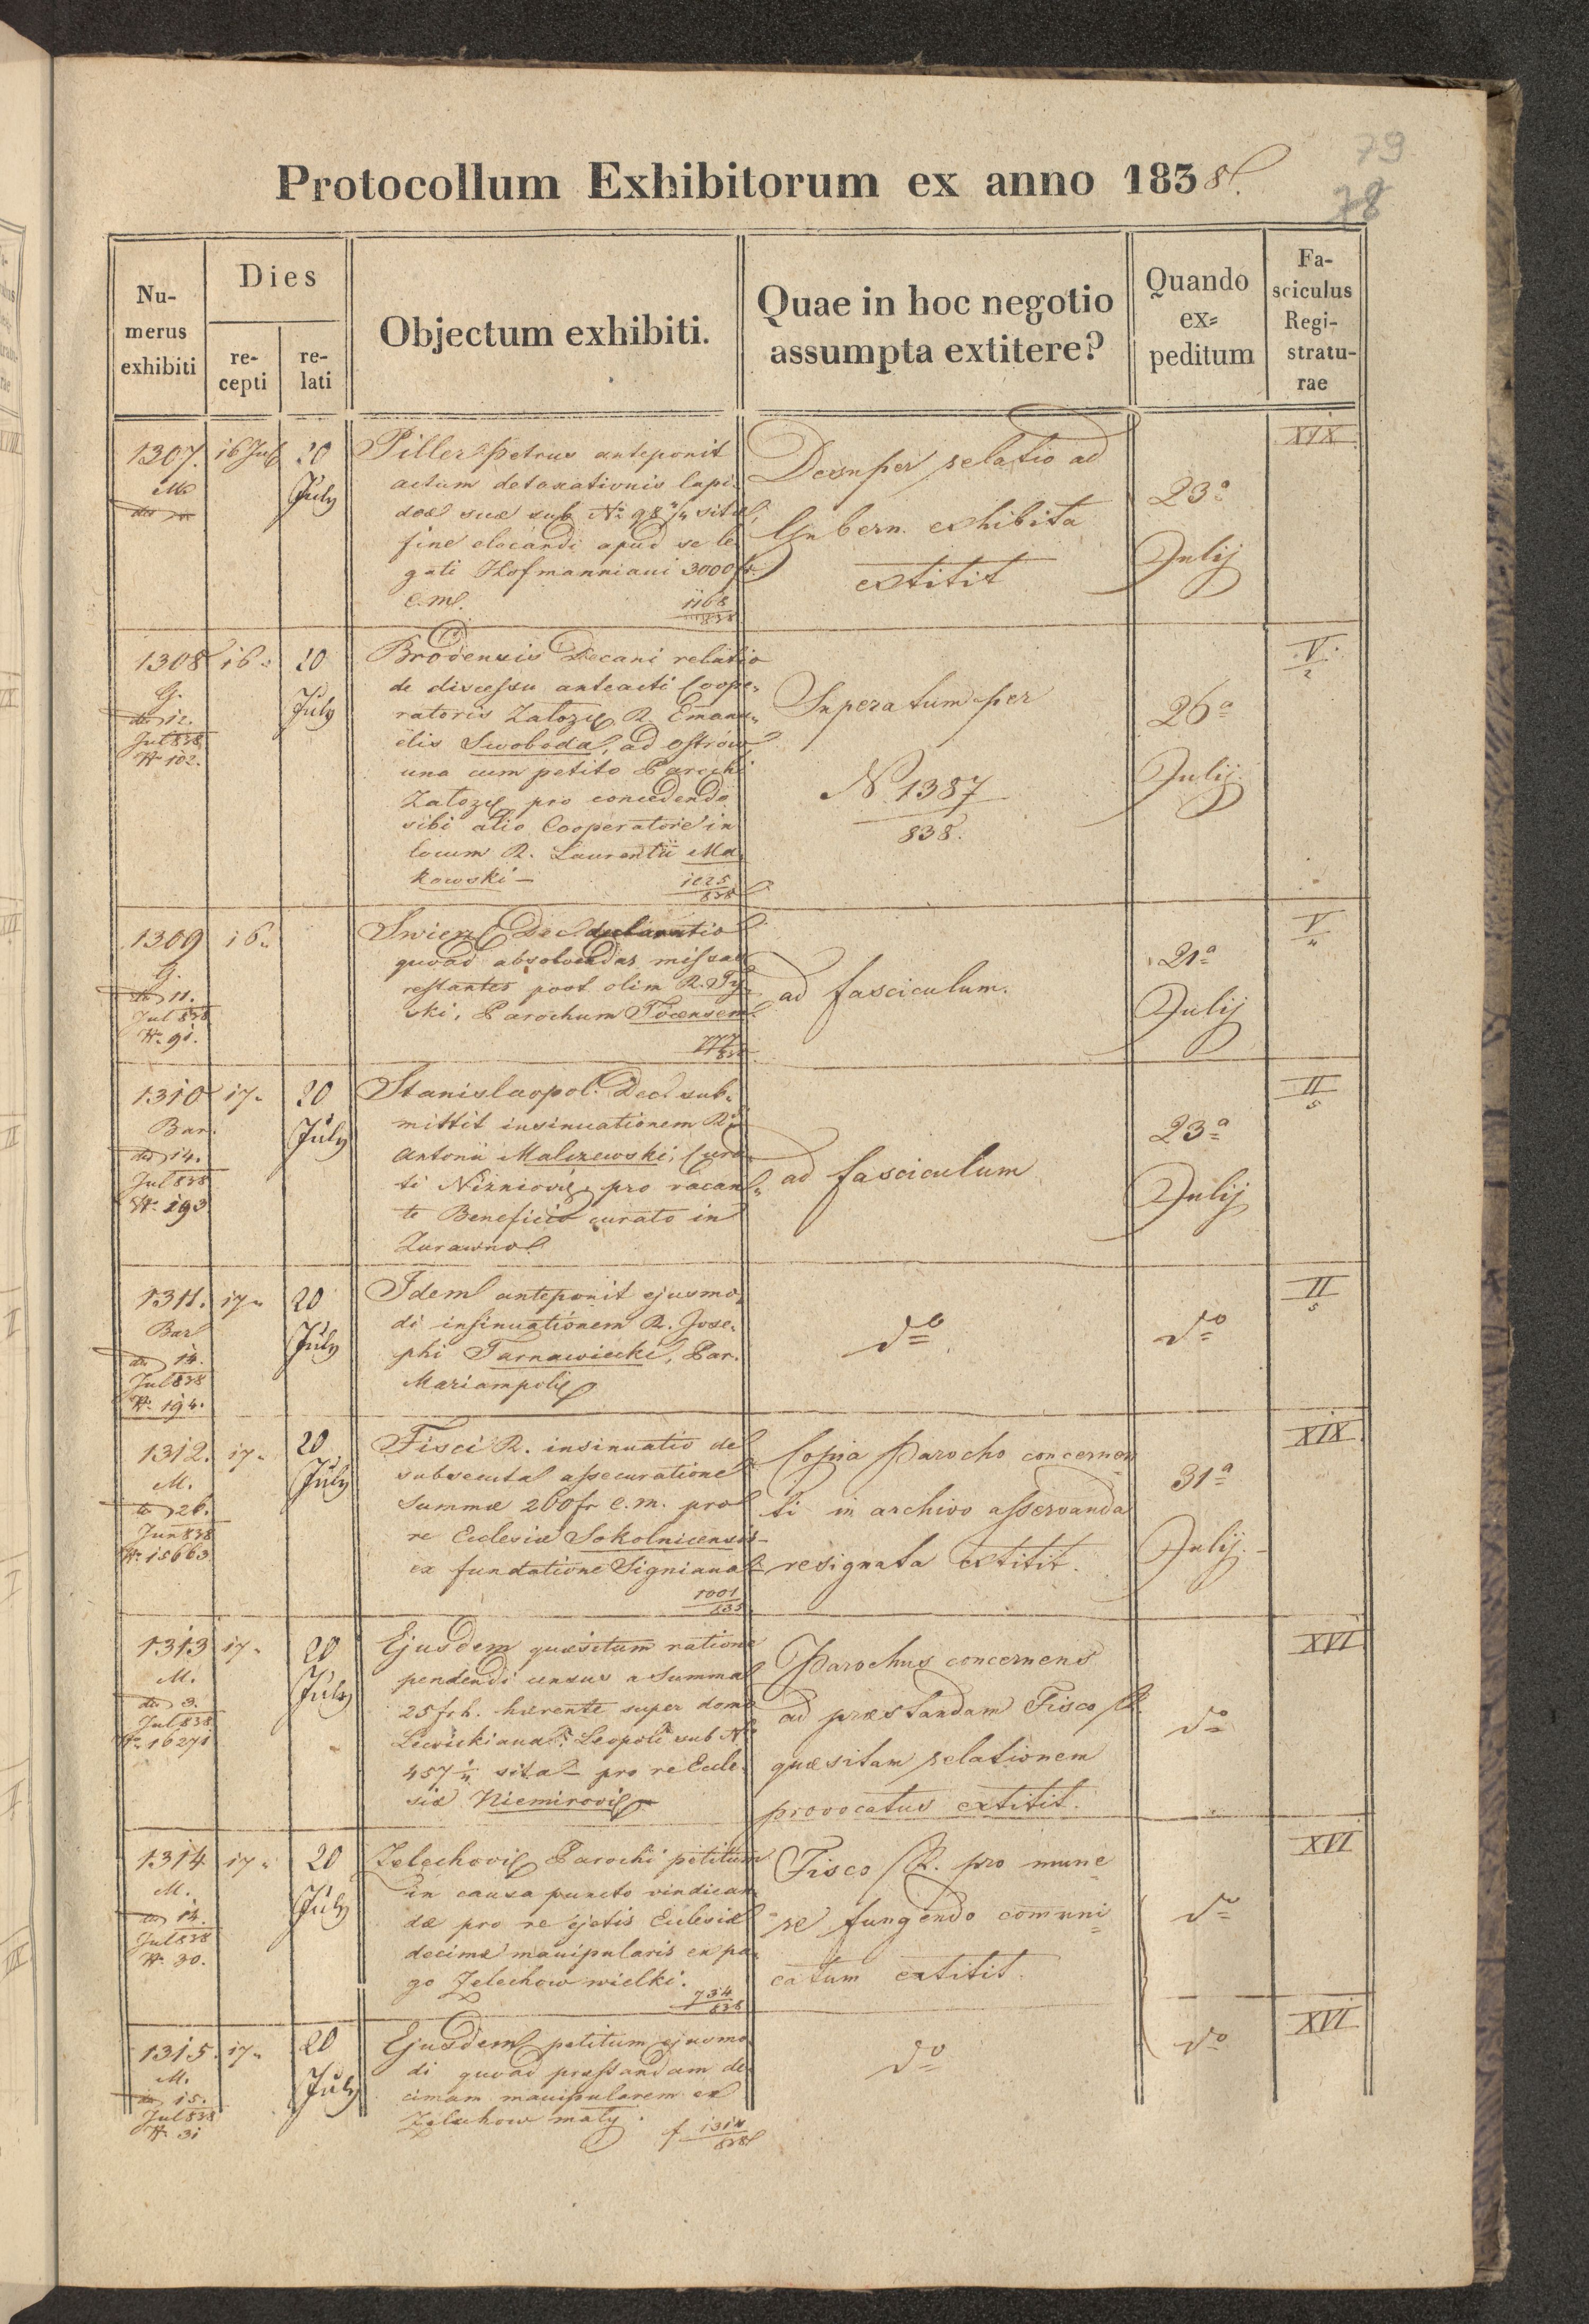 79
78
Protocollum Exhibitorum ex anno 1838.
Numerus exhibiti
Dies
recepti
relati
Objectum exhibiti.
Quae in hoc negotio assumpta extitere?
Quando expeditum
Fasciculus Registraturae
1307. 16 Jul 20 July
M.
Piller Petrus anteponit
actum detaxationis lapi-
deae suae sub Nº 98 2/4 sitae,
fine elocandi apud se le-
gati Hofmanniani 3000 fr
c.m. 1168/838
Desuper relatio ad
Gubern. exhibita
extitit
23ª Julij
XIX
1308 16. 20 July
G.
dto 12.
Jul 838
Nº 102.
Brodensis Decani relatio
de discessu anteacti Coope-
ratoris Załozc. R. Emanu-
elis Swoboda, ad Ostrów
una cum petito Parochi
Załozc. pro concedendo
sibi alio Cooperatore in
locum R. Laurentii Ma-
kowski – 1225/838
Superatum per
N 1387/838.
26ª Julij
V/2
1309 16.
G.
dto 11.
Jul 838
Nº 91.
Swierz. Dec. declaratio
quoad absolvendas missas
restantes post olim R.
ski, Parochum
777/838
ad fasciculum.
21ª Julij
V/4
1310 17. 20 July
Bar.
dto 14.
Jul 838
Nº 193
Stanislaopol. Dec. sub-
mittit insinuationem R.
Antonii Malczewski, Cura-
ti Nizniovi. pro vacan-
te Beneficio curato in
Zurawno.
ad fasciculum
23ª Julij
II/5
1311. 17. 20 July
Bar
dto 14.
Jul 838
Nº 194.
Idem anteponit ejusmo-
di insinuationem R. Jose-
phi Tarnawiecki, Par.
Mariampoli.
dº
dº
II/5
1312. 17. 20 July
M.
dto 26.
Jun 838
Nº 15663
Fisci R. insinuatio de
subsecuta assecuratione
Summae 200 fr c.m. pro
re Eclesiae Sokolnicensis
ex fundatione Signiana
1001/835
Copia Parocho concernen
ti in archivo asservanda
resignata extitit.
31ª Julij.
XIX
1313 17. 20 July
M.
dto 3.
Jul 838
Nº 16271
Ejusdem quaesitum ratione
pendendi census a Summa
25 fr h. haerente super domo
Lewickiana Leopoli sub Nº
457 1/4 sita – pro re Eccle-
siae Niemirovi.
Parochus concernens
ad praestandam Fisco R.
quaesitam relationem
provocatus extitit.
dº
XVI
1314 17. 20 July
M.
dto 14.
Jul 838
Nº 30.
Zelechovi. Parochi petitum
in causa puncto vindican-
dae pro re ejatis Eclesiae
decimae manipularis ex pa-
go Zelechow wielki.
734/838
Fisco R. pro mune
re fungendo comuni
catum extitit.
dº
XVI
1315. 17. 20 July
M.
dto 15.
Jul 838
Nº 31
Ejusdem petitum ejusmo
di quoad praestandam de-
cimam manipularem ex
Zelechow mały.
f 1314/838
dº
dº
XVI